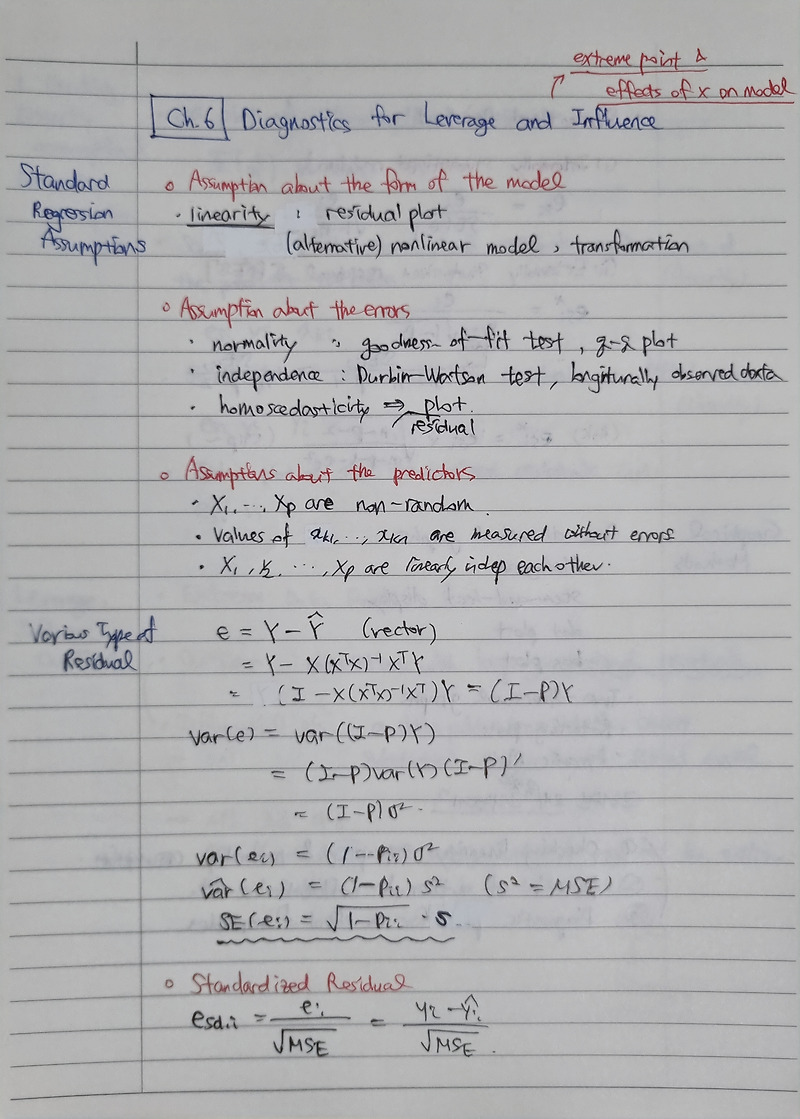 extreme point &
effects of x on model
Ch.6 Diagnostics for Leverage and Influence
Standard
Regression
Assumptions
o Assumption about the form of the model
· linearity : residual plot
(alternative) nonlinear model, transformation
o Assumption about the errors
· normality : goodness-of-fit test, q-q plot
· independence : Durbin-Watson test, longiturally observed data
· homoscedasticity ⇒ plot.
residual
o Assumptions about the predictors
· X₁, ..., Xp are non-random.
· values of are measured without errors
· X₁, X₂, ..., Xp are linearly indep each other.
Various Type of
Residual
e = Y - Ŷ (vector)
= Y - X(XᵀX)⁻¹XᵀY
= (I - X(XᵀX)⁻¹Xᵀ)Y = (I-P)Y
var(e) = var((I-P)Y)
= (I-P)var(Y)(I-P)'
= (I-P)σ².
var(eᵢ) = (1-pᵢᵢ)σ²
var̂(eᵢ) = (1-pᵢᵢ)s² (s² = MSE)
SE(eᵢ) = √(1-pᵢᵢ) · s
o Standardized Residual
e_sd.i = eᵢ / √MSE = yᵢ - ŷᵢ / √MSE.